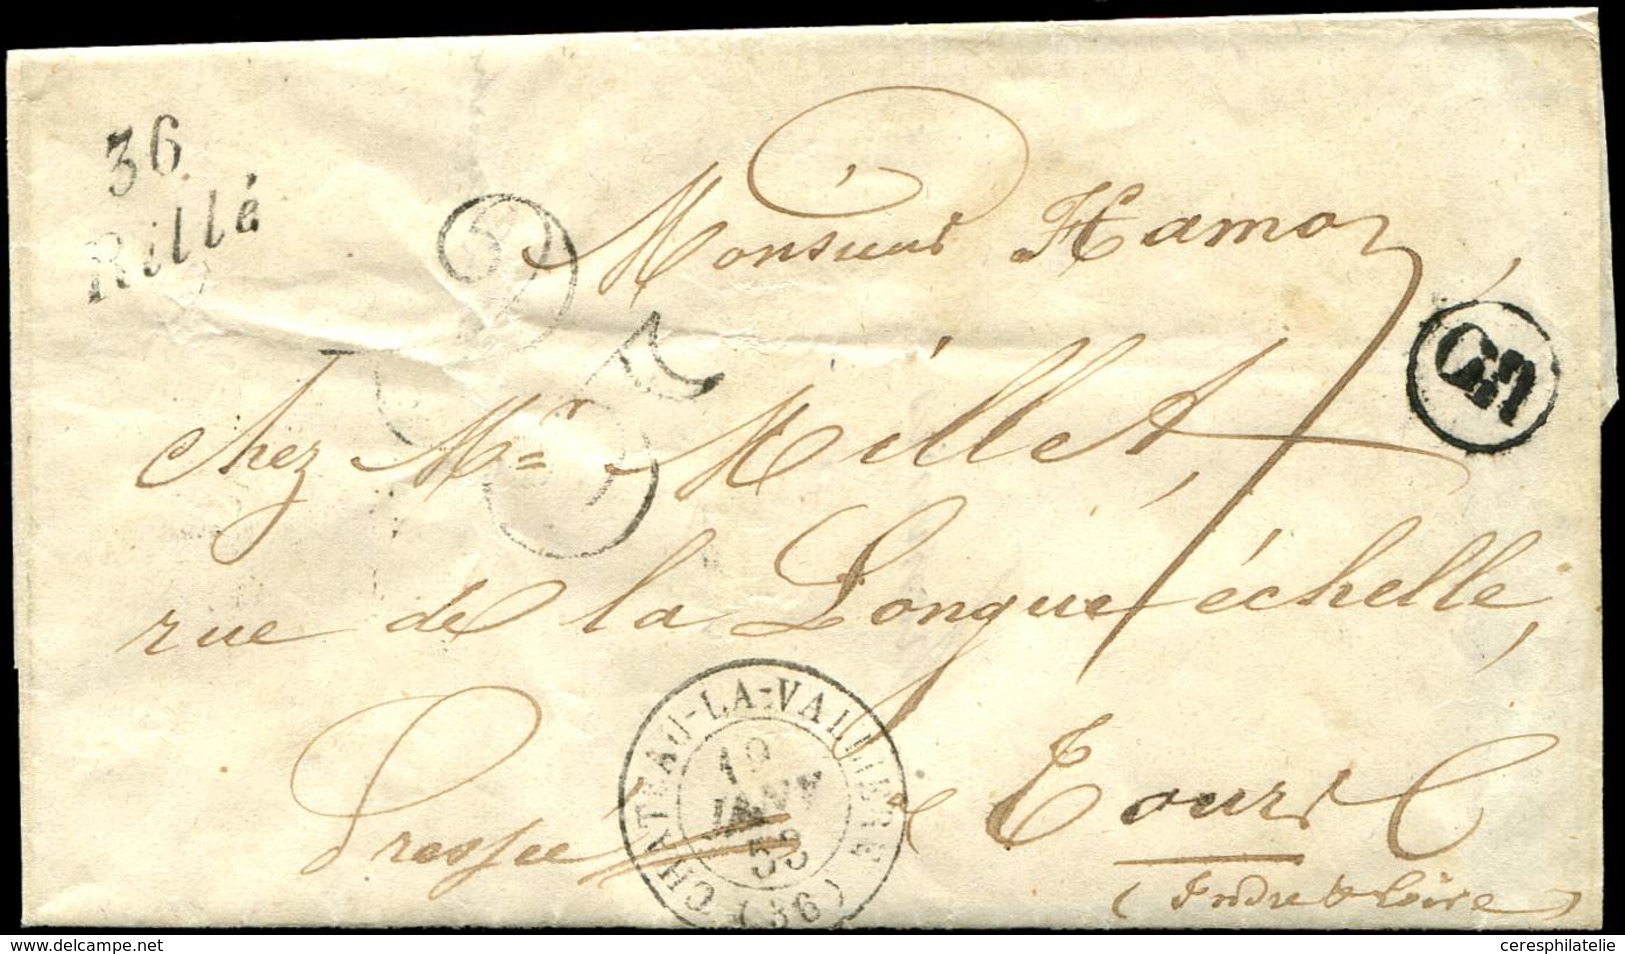 36
Rillé
Monsieur Hamon
chez Mr Millet,
rue de la Longue échelle,
Pressée à Tours
(Indre & Loire)
CHATEAU-LA-VALLIERE
19
JANV
53
(36)
25
ceresphilatelie